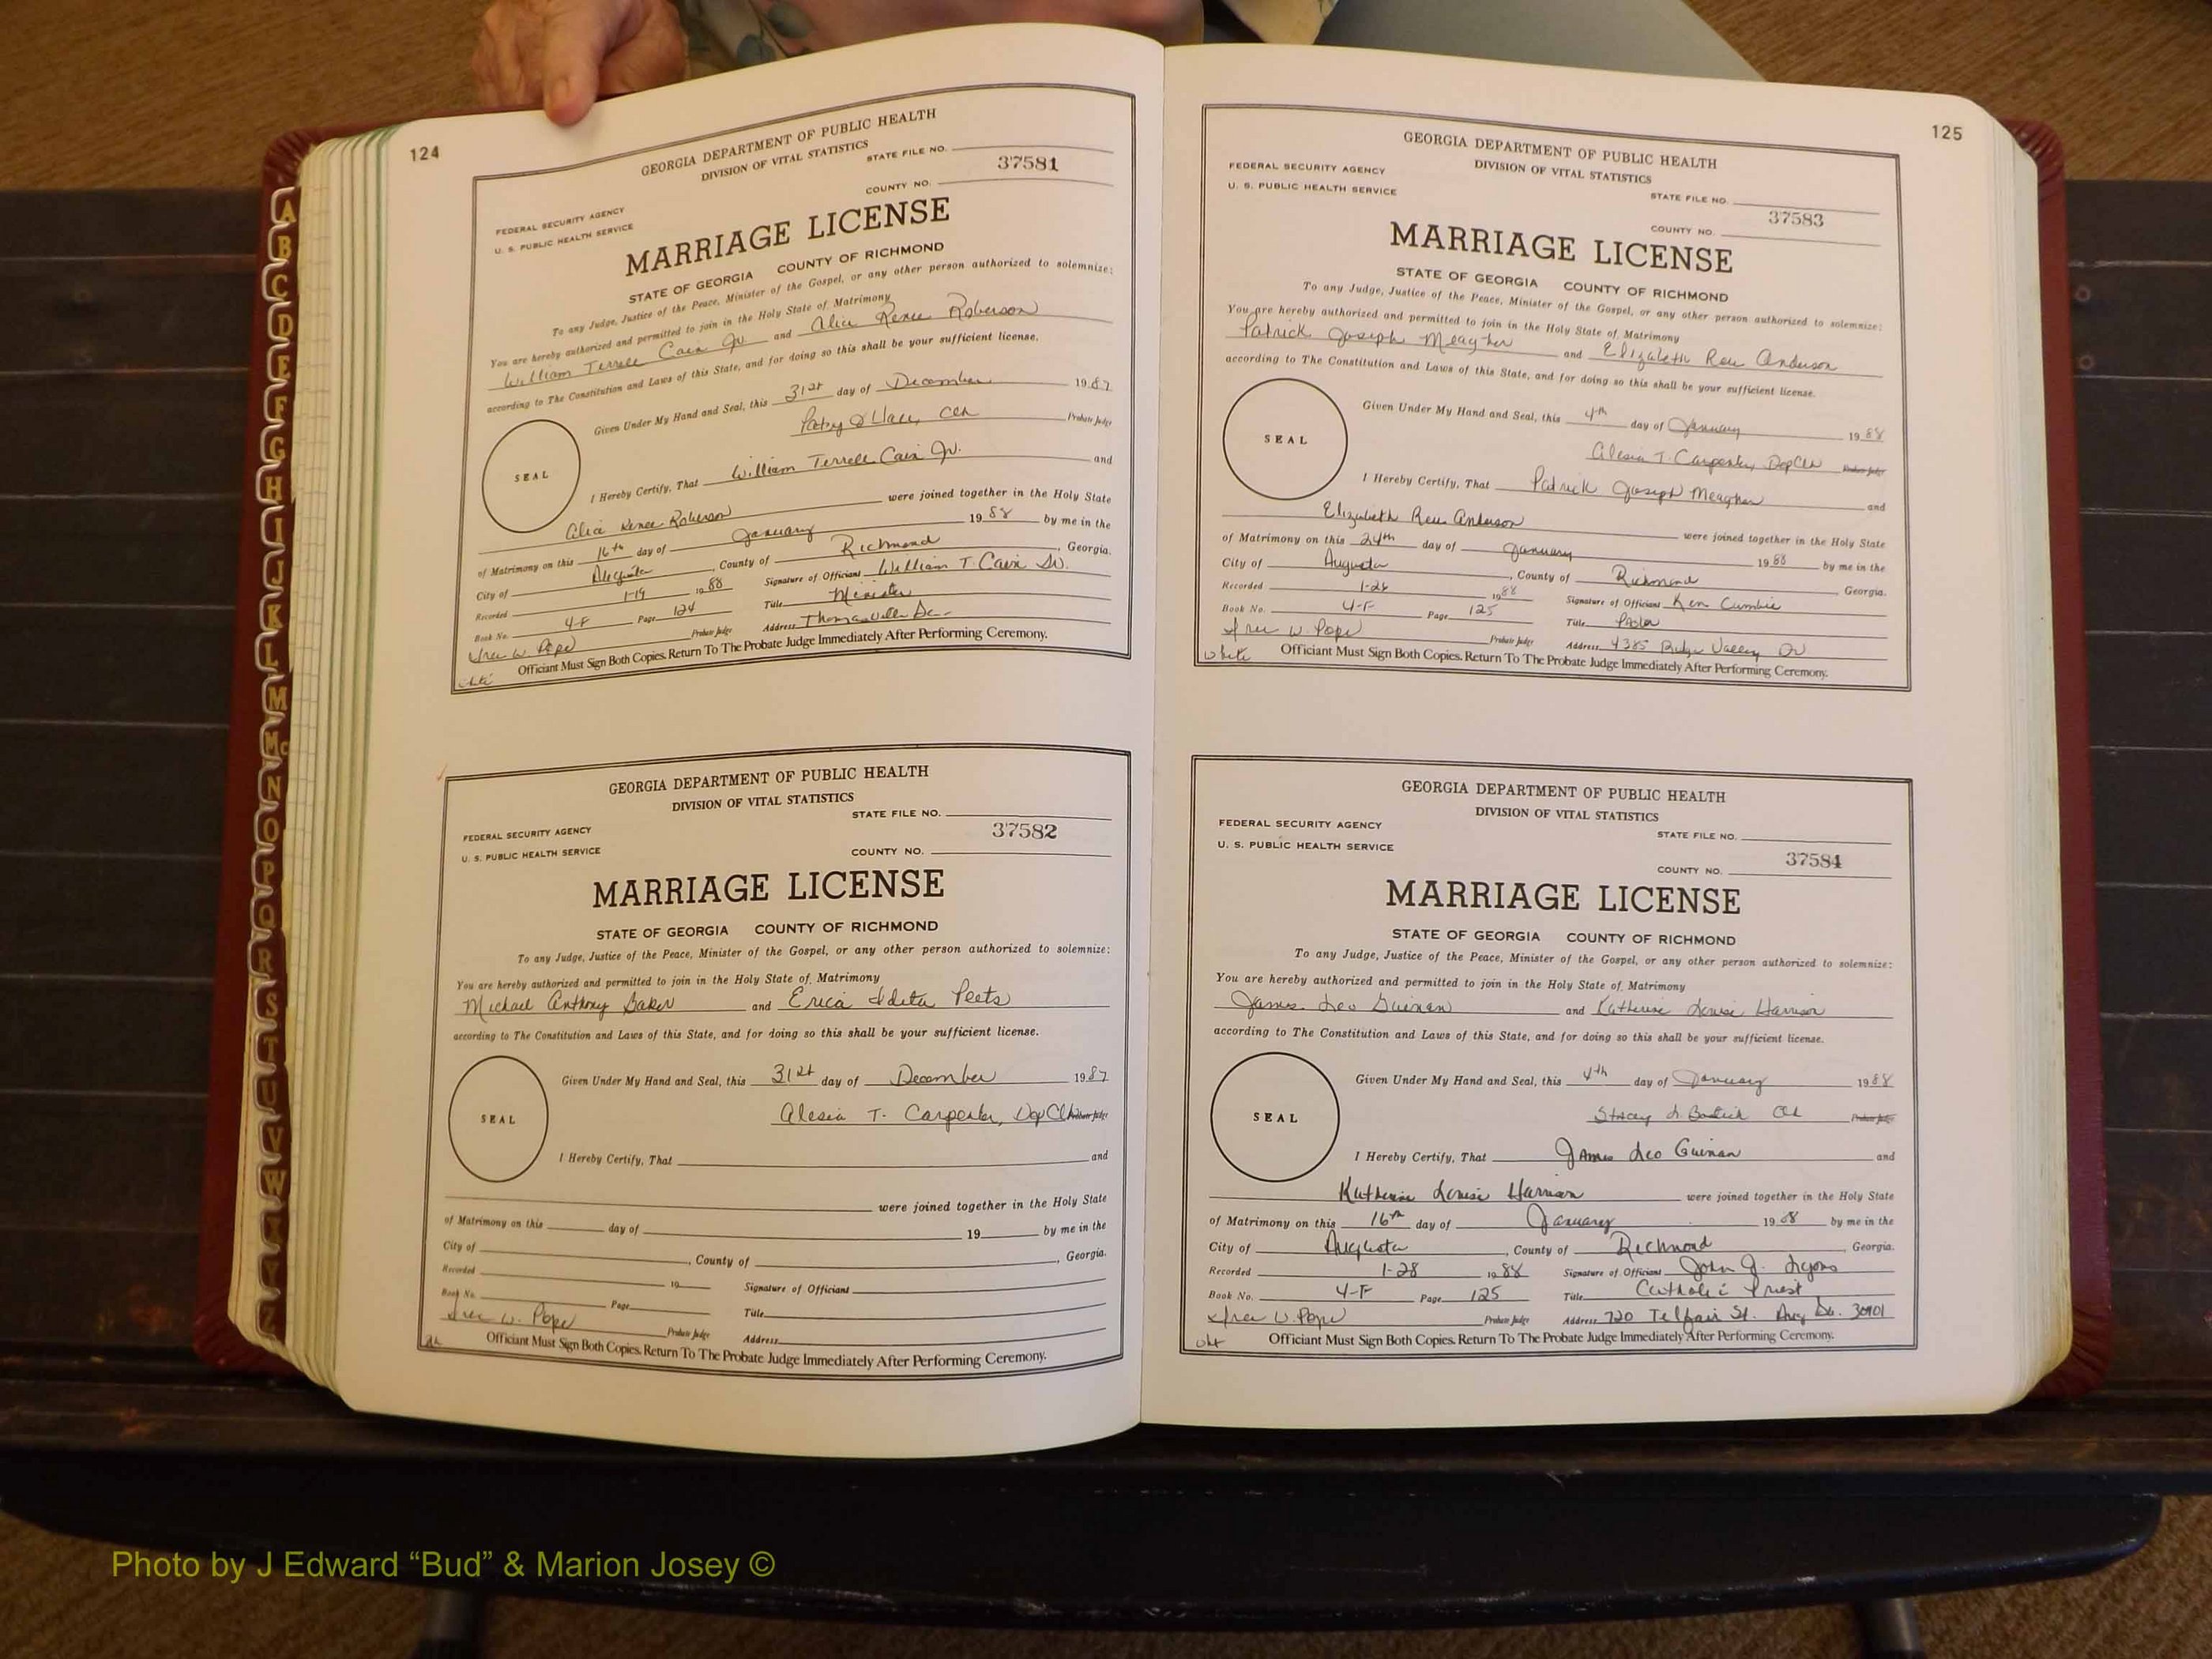 124
GEORGIA DEPARTMENT OF PUBLIC HEALTH
DIVISION OF VITAL STATISTICS
STATE FILE NO.
37581
FEDERAL SECURITY AGENCY
U. S. PUBLIC HEALTH SERVICE
COUNTY NO.
MARRIAGE LICENSE
STATE OF GEORGIA COUNTY OF RICHMOND
To any Judge, Justice of the Peace, Minister of the Gospel, or any other person authorized to solemnize:
You are hereby authorized and permitted to join in the Holy State of Matrimony
William Terrell Cain Jr and Alice Renee Roberson
according to The Constitution and Laws of this State, and for doing so this shall be your sufficient license.
Given Under My Hand and Seal, this 31st day of December 1987
Probate Judge
SEAL
I Hereby Certify, That William Terrell Cain Jr. and
Alice Renee Roberson were joined together in the Holy State
of Matrimony on this 16th day of January 1988 by me in the
City of Augusta, County of Richmond, Georgia.
Recorded 1-19 1988 Signature of Officiant William T. Cain Sr.
Book No. 4-F Page 124 Title Minister
W. Pope Probate Judge Address Thomasville Ga.
Officiant Must Sign Both Copies. Return To The Probate Judge Immediately After Performing Ceremony.
GEORGIA DEPARTMENT OF PUBLIC HEALTH
DIVISION OF VITAL STATISTICS
STATE FILE NO.
37582
FEDERAL SECURITY AGENCY
U. S. PUBLIC HEALTH SERVICE
COUNTY NO.
MARRIAGE LICENSE
STATE OF GEORGIA COUNTY OF RICHMOND
To any Judge, Justice of the Peace, Minister of the Gospel, or any other person authorized to solemnize:
You are hereby authorized and permitted to join in the Holy State of Matrimony
Michael Anthony Baker and Erica Peets
according to The Constitution and Laws of this State, and for doing so this shall be your sufficient license.
Given Under My Hand and Seal, this 31st day of December 1987
Alesia T. Carpenter, Dep Clk Probate Judge
SEAL
I Hereby Certify, That and
were joined together in the Holy State
of Matrimony on this day of 19 by me in the
City of , County of , Georgia.
Recorded 19 Signature of Officiant
Book No. Page Title
W. Pope Probate Judge Address
Officiant Must Sign Both Copies. Return To The Probate Judge Immediately After Performing Ceremony.
125
GEORGIA DEPARTMENT OF PUBLIC HEALTH
DIVISION OF VITAL STATISTICS
FEDERAL SECURITY AGENCY
U. S. PUBLIC HEALTH SERVICE
STATE FILE NO.
37583
COUNTY NO.
MARRIAGE LICENSE
STATE OF GEORGIA COUNTY OF RICHMOND
To any Judge, Justice of the Peace, Minister of the Gospel, or any other person authorized to solemnize:
You are hereby authorized and permitted to join in the Holy State of Matrimony
Patrick Joseph Meagher and Elizabeth Anderson
according to The Constitution and Laws of this State, and for doing so this shall be your sufficient license.
Given Under My Hand and Seal, this 4th day of January 1988
Alesia T. Carpenter, Dep Clk Probate Judge
SEAL
I Hereby Certify, That Patrick Joseph Meagher and
Elizabeth Anderson were joined together in the Holy State
of Matrimony on this 24th day of January 1988 by me in the
City of Augusta, County of Richmond Georgia.
Recorded 1-26 1988 Signature of Officiant Ken Cumbie
Book No. 4-F Page 125 Title Pastor
W. Pope Probate Judge Address 4385 Ridge Valley Dr
White Officiant Must Sign Both Copies. Return To The Probate Judge Immediately After Performing Ceremony.
GEORGIA DEPARTMENT OF PUBLIC HEALTH
DIVISION OF VITAL STATISTICS
FEDERAL SECURITY AGENCY
U. S. PUBLIC HEALTH SERVICE
STATE FILE NO.
37584
COUNTY NO.
MARRIAGE LICENSE
STATE OF GEORGIA COUNTY OF RICHMOND
To any Judge, Justice of the Peace, Minister of the Gospel, or any other person authorized to solemnize:
You are hereby authorized and permitted to join in the Holy State of Matrimony
James Leo Guinan and Katherine Louise Harrison
according to The Constitution and Laws of this State, and for doing so this shall be your sufficient license.
Given Under My Hand and Seal, this 4th day of January 1988
Stacey Clk Probate Judge
SEAL
I Hereby Certify, That James Leo Guinan and
Katherine Louise Harrison were joined together in the Holy State
of Matrimony on this 16th day of January 1988 by me in the
City of Augusta, County of Richmond, Georgia.
Recorded 1-28 1988 Signature of Officiant John J. Lyons
Book No. 4-F Page 125 Title Catholic Priest
W. Pope Probate Judge Address 720 Telfair St. Aug Ga. 30901
Officiant Must Sign Both Copies. Return To The Probate Judge Immediately After Performing Ceremony.
A
B
C
D
E
F
G
H
I
J
K
L
M
Mc
N
O
P
Q
R
S
T
U
V
W
X
Y
Z
Photo by J Edward “Bud” & Marion Josey ©